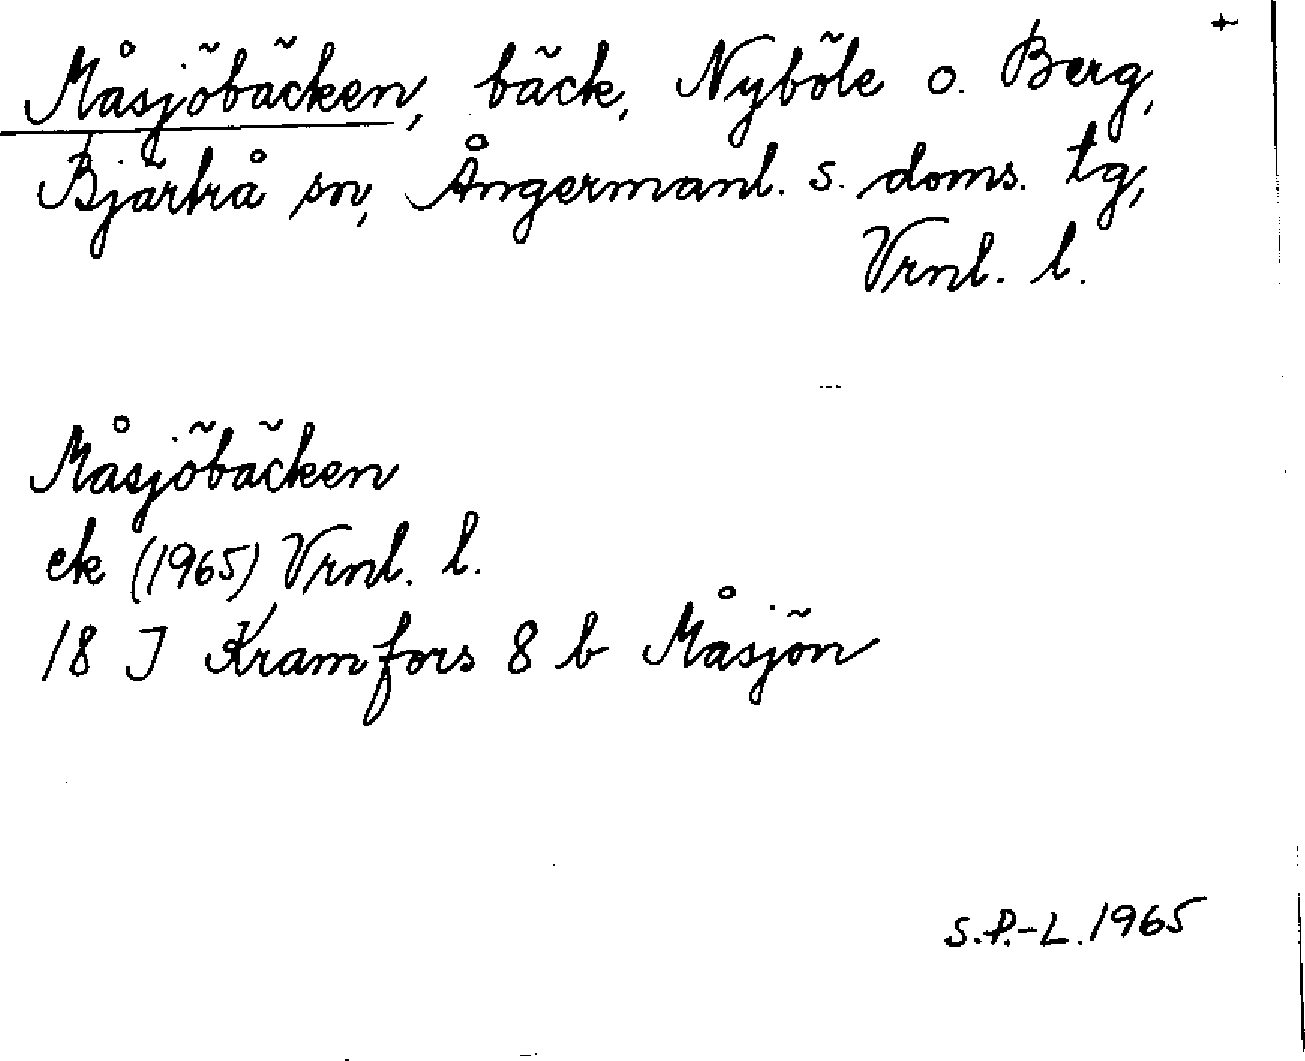 +
Måsjöbäcken, bäck, Nyböle o. Berg,
Bjärtrå sn, Ångermanl. s. doms. tg,
Vrnl. l.
Måsjöbäcken
ek (1965) Vrnl. l.
18 J Kramfors 8 b Måsjön
S.P.-L. 1965